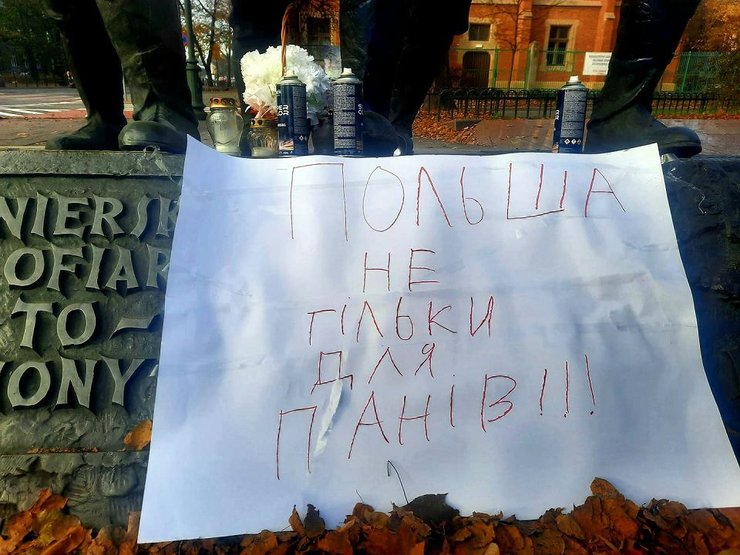 NIERSK
OFIAR
TO—
ONY
ПОЛЬША
НЕ
ТІЛЬКИ
ДЛЯ
ПАНІВ!!!